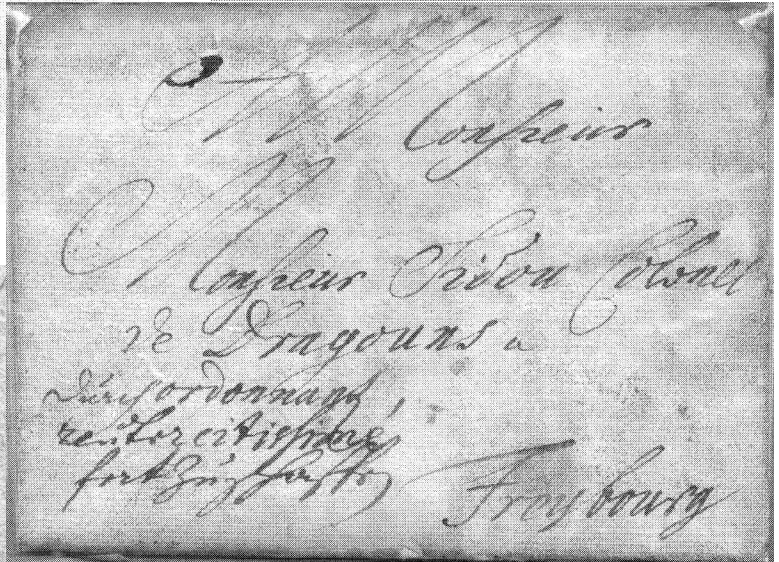 A Monsieur
Monsieur Pidou Colonel
de Dragouns a
durch ordonnantz,
reuter citissime
fort zu schaffen
Freybourg